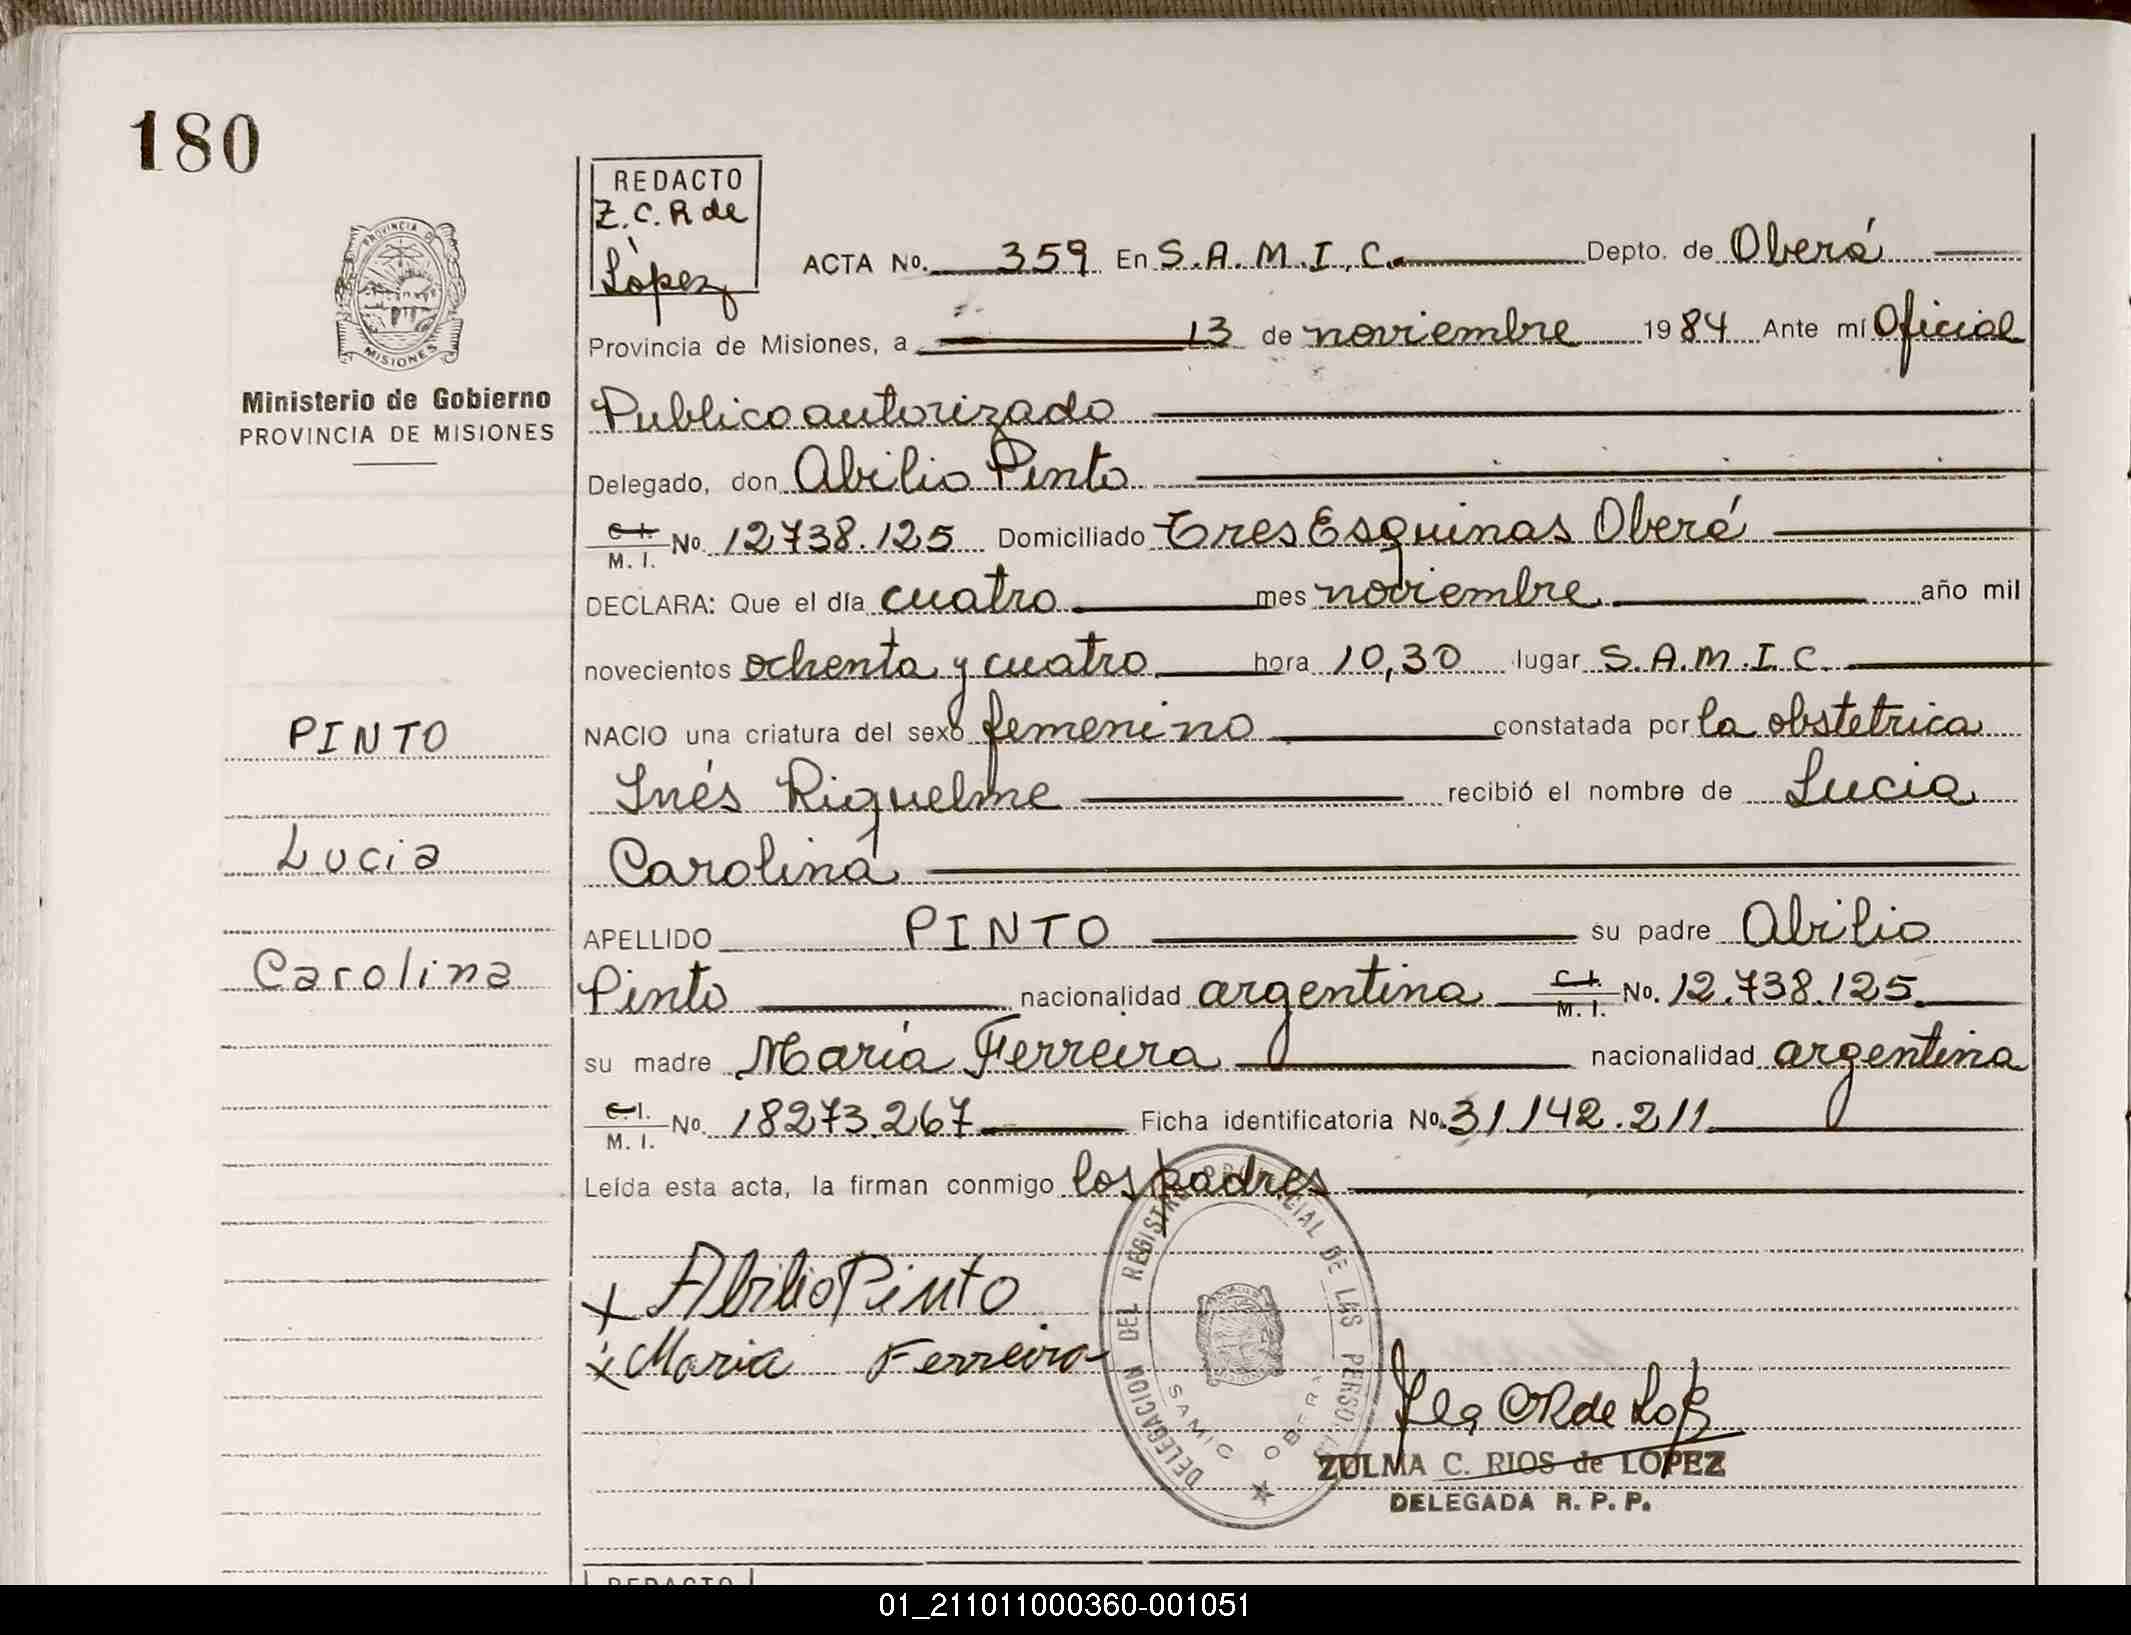 180
REDACTO
Z. C. R de
López
PROVINCIA DE
MISIONES
Ministerio de Gobierno
PROVINCIA DE MISIONES
ACTA No. 359 En S.A.M.I.C. Depto. de Oberá
Provincia de Misiones, a 13 de noviembre 1984 Ante mí Oficial
Publico autorizado
Delegado, don Abilio Pinto
C. I.
M. I. No. 12738.125 Domiciliado Tres Esquinas Oberá
DECLARA: Que el día cuatro mes noviembre año mil
novecientos ochenta y cuatro hora 10,30 lugar S.A.M.I.C.
PINTO
NACIO una criatura del sexo femenino constatada por la obstetrica
Inés Riquelme recibió el nombre de Lucia
Lucia
Carolina
APELLIDO PINTO su padre Abilio
Carolina
Pinto nacionalidad argentina C. I. M. I. No. 12.738.125.
su madre María Ferreira nacionalidad argentina
C. I.
M. I. No. 18273.267 Ficha identificatoria No. 31.142.211
Leída esta acta, la firman conmigo los padres
x Abilio Pinto
x Maria Ferreira
DELEGACION DEL REGISTRO PROVINCIAL DE LAS PERSONAS
SAMIC OBERA
ZULMA C. RIOS de LOPEZ
DELEGADA R. P. P.
REDACTO
01_211011000360-001051